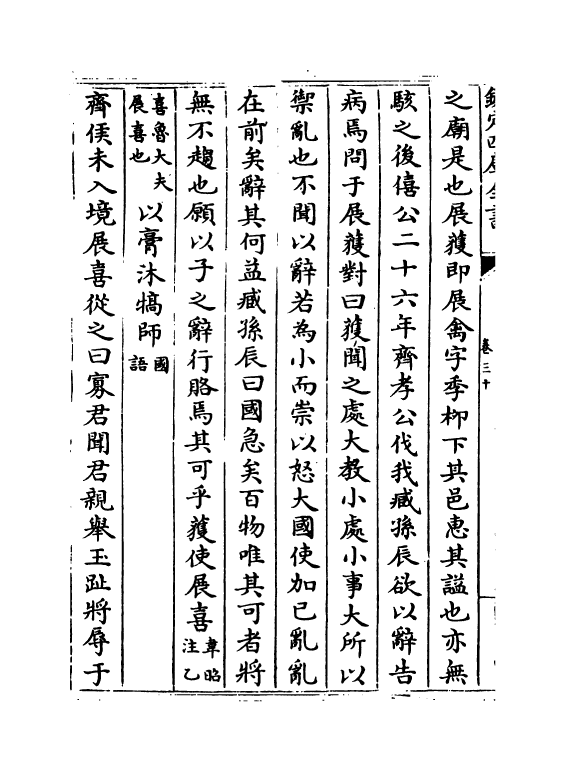 欽定四庫全書
卷三十
之廟是也展獲即展禽字季柳下其邑惠其諡也亦無
駭之後僖公二十六年齊孝公伐我臧孫辰欲以辭告
病焉問于展獲對曰獲聞之處大教小處小事大所以
禦亂也不聞以辭若為小而崇以怒大國使加已亂亂
在前矣辭其何益臧孫辰曰國急矣百物唯其可者將
無不趨也願以子之辭行賂焉其可乎獲使展喜韋昭注乙
喜魯大夫展喜也以膏沐犒師國語
齊侯未入境展喜從之曰寡君聞君親舉玉趾將辱于